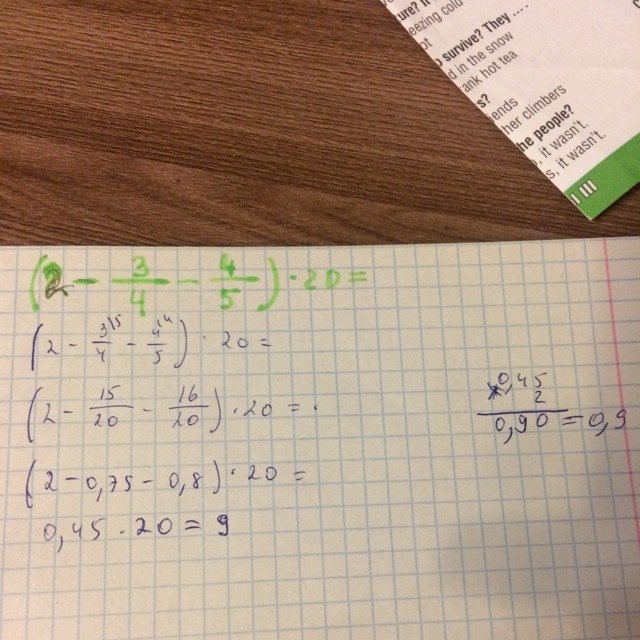 ure? It
eezing cold
ot
survive? They ....
d in the snow
ank hot tea
s?
ends
her climbers
he people?
, it wasn't.
s, it wasn't.
III
(2 - 3/4 - 4/5) · 20 =
(2 - 3/4 - 4/5) · 20 =
(2 - 15/20 - 16/20) · 20 =
(2 - 0,75 - 0,8) · 20 =
0,45 · 20 = 9
0,45
2
0,90 = 0,9